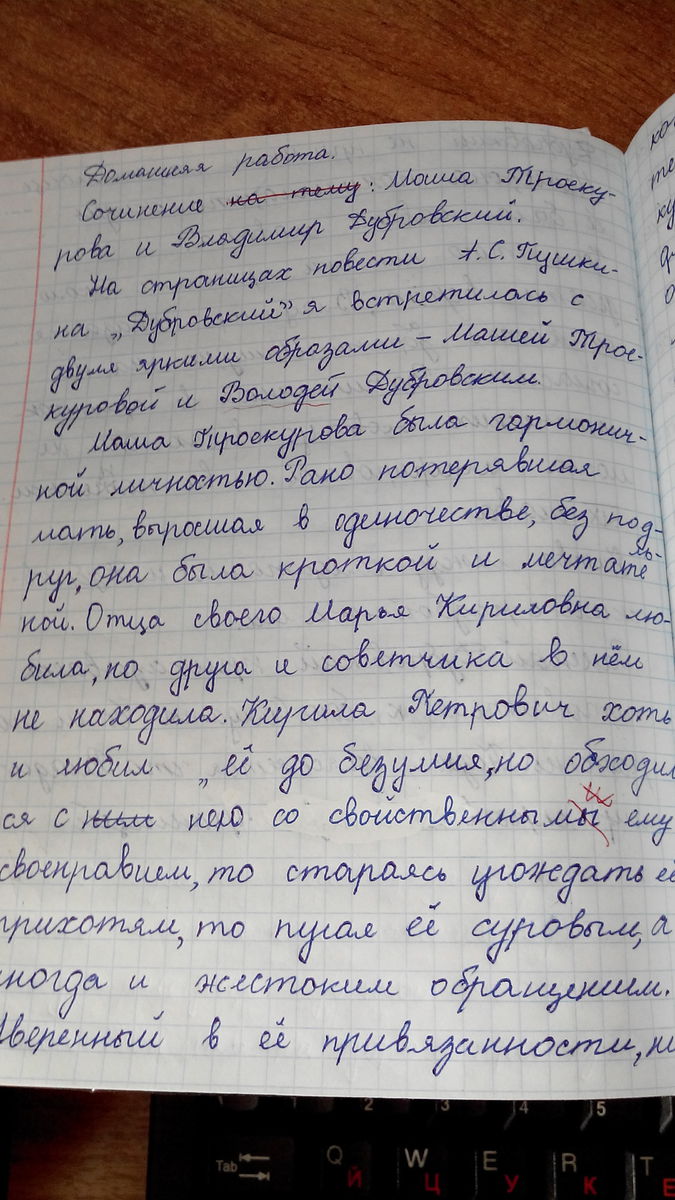 Домашняя работа.
Сочинение на тему: Маша Троеку-
рова и Владимир Дубровский.
На страницах повести А.С.Пушки-
на „Дубровский” я встретилась с
двумя яркими образами – Машей Трое-
куровой и Володей Дубровским.
Маша Троекурова была гармонич-
ной личностью. Рано потерявшая
мать, выросшая в одиночестве, без под-
руг, она была кроткой и мечтатель-
ной. Отца своего Марья Кириловна лю-
била, но друга и советчика в нём
не находила. Кирила Петрович хоть
и любил „её до безумия, но обходил
ся с ним нею со свойственным ему
своенравием, то стараясь угождать её
прихотям, то пугая её суровым, а
иногда и жестоким обращением.
Уверенный в её привязанности, ни
Tab Q Й W Ц E У R К T Е
2 3 4 5